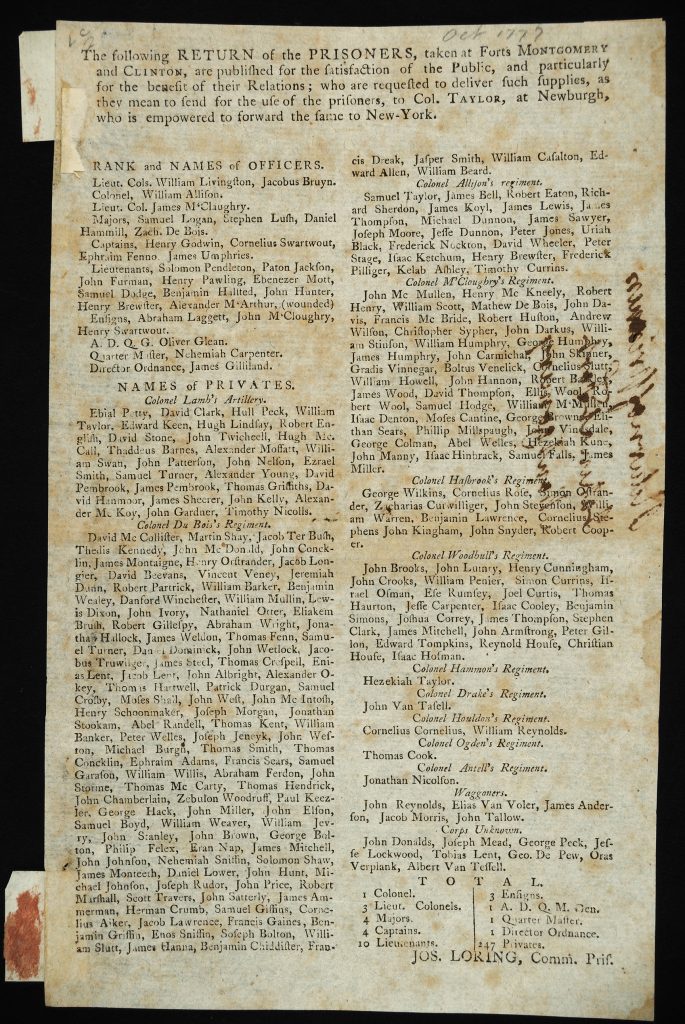 Oct 1777
The following RETURN of the PRISONERS, taken at Forts MONTGOMERY
and CLINTON, are publiſhed for the ſatisfaction of the Public, and particularly
for the benefit of their Relations; who are requeſted to deliver ſuch ſupplies, as
they mean to ſend for the uſe of the priſoners, to Col. TAYLOR, at Newburgh,
who is empowered to forward the ſame to New-York.
RANK and NAMES of OFFICERS.
Lieut. Cols. William Livingſton, Jacobus Bruyn.
Colonel, William Alliſon.
Lieut. Col. James M'Claughry.
Majors, Samuel Logan, Stephen Luſh, Daniel
Hammill, Zach. De Bois.
Captains, Henry Godwin, Cornelius Swartwout,
Ephraim Fenno James Umphries.
Lieutenants, Solomon Pendleton, Paton Jackſon,
John Furman, Henry Pawling, Ebenezer Mott,
Samuel Dodge, Benjamin Halſted, John Hunter,
Henry Brewſter, Alexander M'Arthur, (wounded)
Enſigns, Abraham Laggett, John M'Cloughry,
Henry Swartwout.
A. D. Q. G. Oliver Glean.
Quarter Maſter, Nehemiah Carpenter.
Director Ordnance, James Gilliland.
NAMES of PRIVATES.
Colonel Lamb's Artillery.
Ebial Patty, David Clark, Hull Peck, William
Taylor, Edward Keen, Hugh Lindſay, Robert En-
gliſh, David Stone, John Twicheell, Hugh Mc.
Call, Thaddeus Barnes, Alexander Moffatt, Will-
iam Swan, John Patterſon, John Nelſon, Ezrael
Smith, Samuel Turner, Alexander Young, David
Pembrook, James Pembrook, Thomas Griffiths, Da-
vid Hanmoor, James Sheerer, John Kelly, Alexan-
der Mc Koy, John Gardner, Timothy Nicolls.
Colonel Du Bois's Regiment.
David Mc Colliſter, Martin Shay, Jacob Ter Buſh,
Thedis Kennedy, John Mc Donald, John Conck-
lin, James Montaigne, Henry Oſtrander, Jacob Lon-
gier, David Beevans, Vincent Veney, Jeremiah
Dunn, Robert Partrick, William Barker, Benjamin
Wealey, Danford Wincheſter, William Mullin, Lew-
is Dixon, John Ivory, Nathaniel Otter, Eliakem
Bruſh, Robert Gilleſpy, Abraham Wright, Jona-
than Hallock, James Weldon, Thomas Fenn, Samu-
el Turner, Daniel Dominick, John Wetlock, Jaco-
bus Truwilger, James Steel, Thomas Creſpeil, Eni-
as Lent, Jacob Lent, John Albright, Alexander O-
key, Thomas Hartwell, Patrick Durgan, Samuel
Croſby, Moſes Shall, John Weſt, John Mc Intoſh,
Henry Schoonmaker, Joſeph Morgan, Jonathan
Stookam, Abel Randell, Thomas Kent, William
Banker, Peter Welles, Joſeph Jeneyk, John Weſ-
ton, Michael Burgh, Thomas Smith, Thomas
Concklin, Ephraim Adams, Francis Sears, Samuel
Garaſon, William Willis, Abraham Ferdon, John
Storme, Thomas Mc Carty, Thomas Hendrick,
John Chamberlain, Zebulon Woodruff, Paul Keez-
ler, George Hack, John Miller, John Elſon,
Samuel Boyd, William Weaver, William Jev-
ry, John Stanley, John Brown, George Bol-
ton, Philip Felex, Eran Nap, James Mitchell,
John Johnſon, Nehemiah Sniffin, Solomon Shaw,
James Monteeth, Daniel Lower, John Hunt, Mi-
chael Johnſon, Joſeph Rudor, John Price, Robert
Marſhall, Scott Travers, John Satterly, James Am-
merman, Herman Crumb, Samuel Giffins, Corne-
lius Aiker, Jacob Lawrence, Francis Gaines, Ben-
jamin Griffin, Enos Sniffin, Soſeph Bolton, Willi-
am Slutt, James Hanna, Benjamin Chiddiſter, Fran-
cis Dreak, Jaſper Smith, William Caſalton, Ed-
ward Allen, William Beard.
Colonel Alliſon's regiment.
Samuel Taylor, James Bell, Robert Eaton, Rich-
ard Sherdon, James Koyl, James Lewis, James
Thompſon, Michael Dunnon, James Sawyer,
Joſeph Moore, Jeſſe Dunnon, Peter Jones, Uriah
Black, Frederick Nockton, David Wheeler, Peter
Stage, Iſaac Ketchum, Henry Brewſter, Frederick
Pilliger, Kelab Aſhley, Timothy Currins.
Colonel McCloughry's Regiment.
John Mc Mullen, Henry Mc Kneely, Robert
Henry, William Scott, Mathew De Bois, John Da-
vis, Francis Mc Bride, Robert Huſton, Andrew
Wilſon, Chriſtopher Sypher, John Darkus, Willi-
am Stinſon, William Humphry, George Humphry,
James Humphry, John Carmichal, John Skinner,
Gradis Vinnegar, Boltus Venelick, Cornelius Slutt,
William Howell, John Hannon, Robert
James Wood, David Thompſon, Ellis Wool, Ro-
bert Wool, Samuel Hodge, William M'Mullen,
Iſaac Denton, Moſes Cantine, George Browne, Eli-
than Sears, Phillip Millſpaugh, John Vinegdale,
George Colman, Abel Welles, Hezekiah Kane,
John Manny, Iſaac Hinbrack, Samuel Falls, James
Miller.
Colonel Haſbrook's Regiment.
George Wilkins, Cornelius Roſe, Simon Oſtran-
der, Zacharias Curwilliger, John Stevenſon, Willi-
am Warren, Benjamin Lawrence, Cornelius Ste-
phens John Kingham, John Snyder, Robert Coop-
er.
Colonel Woodhull's Regiment.
John Brooks, John Lumry, Henry Cunningham,
John Crooks, William Penier, Simon Currins, Iſ-
rael Oſman, Eſe Rumſey, Joel Curtis, Thomas
Haurton, Jeſſe Carpenter, Iſaac Cooley, Benjamin
Simons, Joſhua Correy, James Thompſon, Stephen
Clark, James Mitchell, John Armſtrong, Peter Gil-
lon, Edward Tompkins, Reynold Houſe, Chriſtian
Houſe, Iſaac Hofman.
Colonel Hammon's Regiment.
Hezekiah Taylor.
Colonel Drake's Regiment.
John Van Taſell.
Colonel Houldon's Regiment.
Cornelius Cornelius, William Reynolds.
Colonel Ogden's Regiment.
Thomas Cook.
Colonel Antell's Regiment.
Jonathan Nicolſon.
Waggoners.
John Reynolds, Elias Van Voler, James Ander-
ſon, Jacob Morris, John Tallow.
Corps Unknown.
John Donalds, Joſeph Mead, George Peck, Jeſ-
ſe Lockwood, Tobias Lent, Geo. De Pew, Oras
Verplank, Albert Van Teſſell.
TOTAL.
1 Colonel.
3 Lieut. Colonels.
4 Majors.
4 Captains.
10 Lieutenants.
3 Enſigns.
1 A. D. Q. M. Gen.
1 Quarter Maſter.
1 Director Ordnance.
247 Privates.
JOS. LORING, Comm. Priſ.